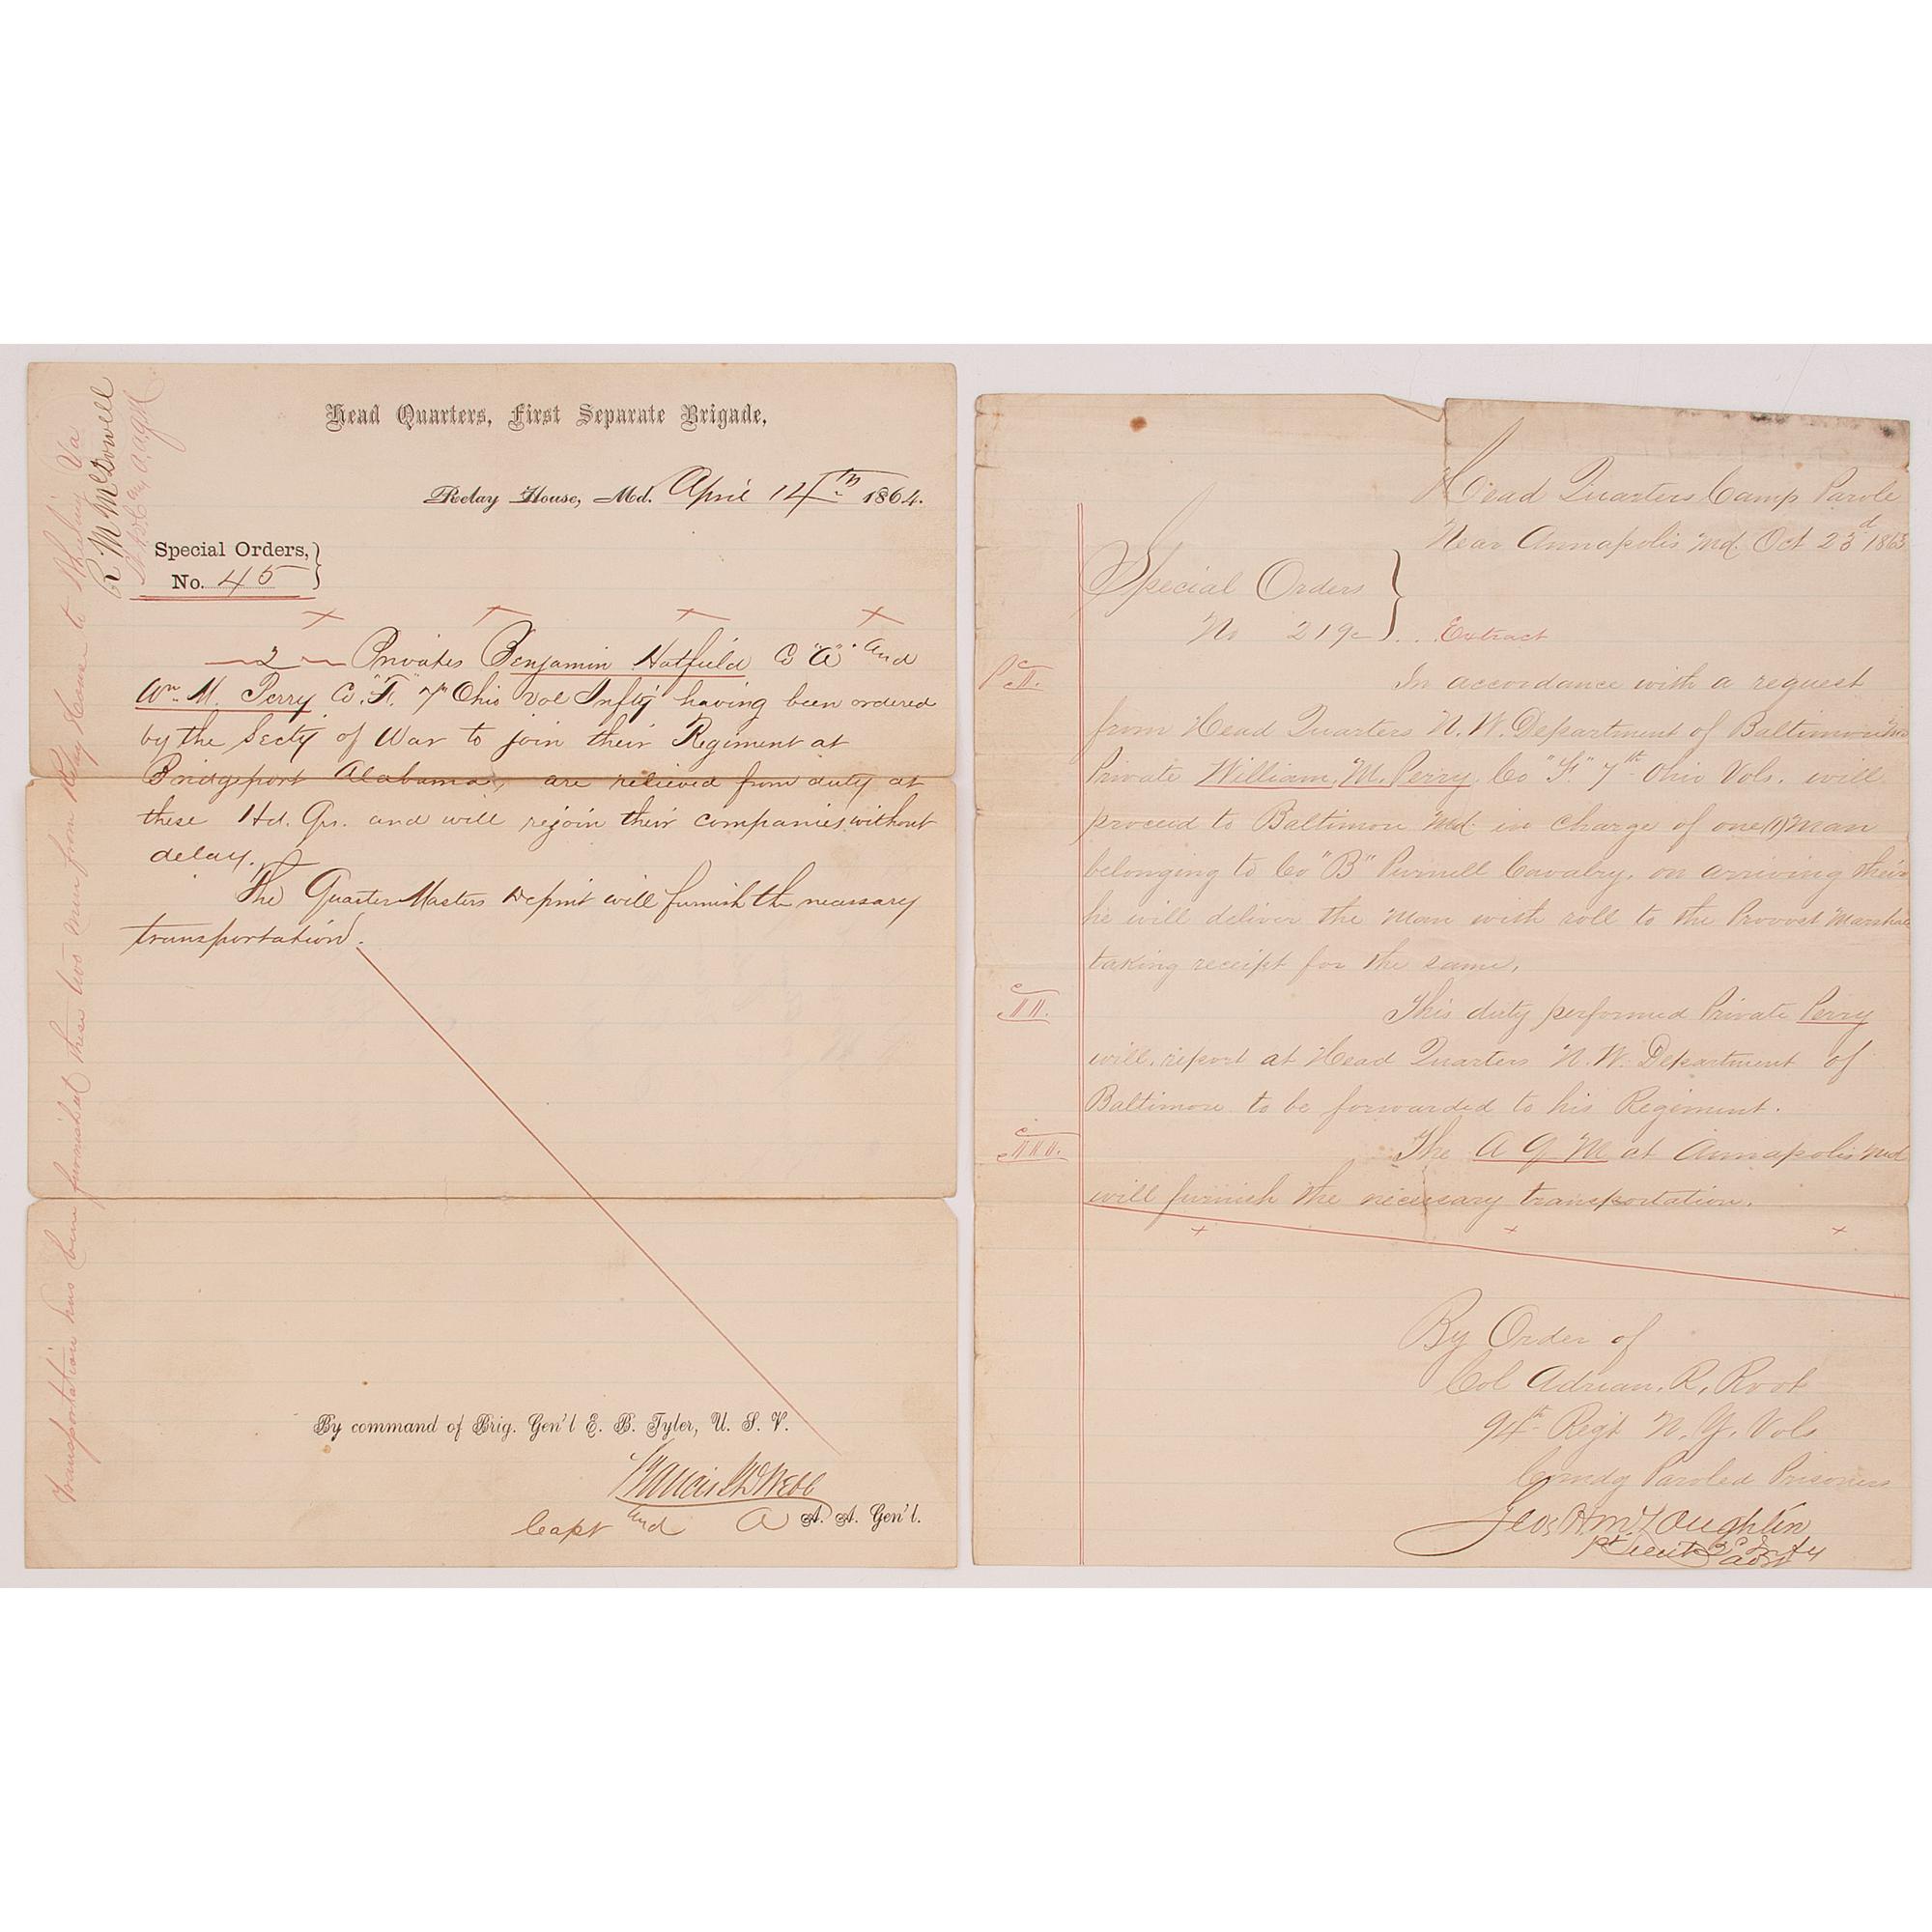 Head Quarters, First Separate Brigade,
Relay House, Md. April 14th 1864.
Special Orders,
No. 45
2 Privates Benjamin Hatfield Co "A" and
Wm. M. Perry Co. "F." 7th Ohio Vol Inftry having been ordered
by the Secty of War to join their Regiment at
Bridgeport Alabama, are relieved from duty at
these Hd. Qrs. and will rejoin their companies without
delay.
The Quarter Masters Depmt will furnish the necessary
transportation.
By command of Brig. Gen'l E. B. Tyler, U. S. V.
Francis I D Webb
Capt and A A. A. Gen'l.
Transportation has been furnished these two men from Relay House to Wheeling Va
R M McDowell
Head Quarters Camp Parole
Near Annapolis Md. Oct 23d 1863
Special Orders
No 219 Extract
I.
In accordance with a request
from Head Quarters N. W. Department of Baltimore Md
Private William, M. Perry, Co "F." 7th Ohio Vols. will
proceed to Baltimore Md. in charge of one (1) Man
belonging to Co "B" Purnell Cavalry. on arriving their
he will deliver the Man with roll to the Provost Marshal
taking receipt for the same.
II.
This duty performed Private Perry
will, report at Head Quarters N. W. Department of
Baltimore to be forwarded to his Regiment.
III.
The A Q M at Annapolis Md
will furnish the necessary transportation.
By Order of
Col Adrian. R. Root
94th Regt N. Y. Vols
Comdg Paroled Prisoners
Geo H McLoughlin
1st Lieut